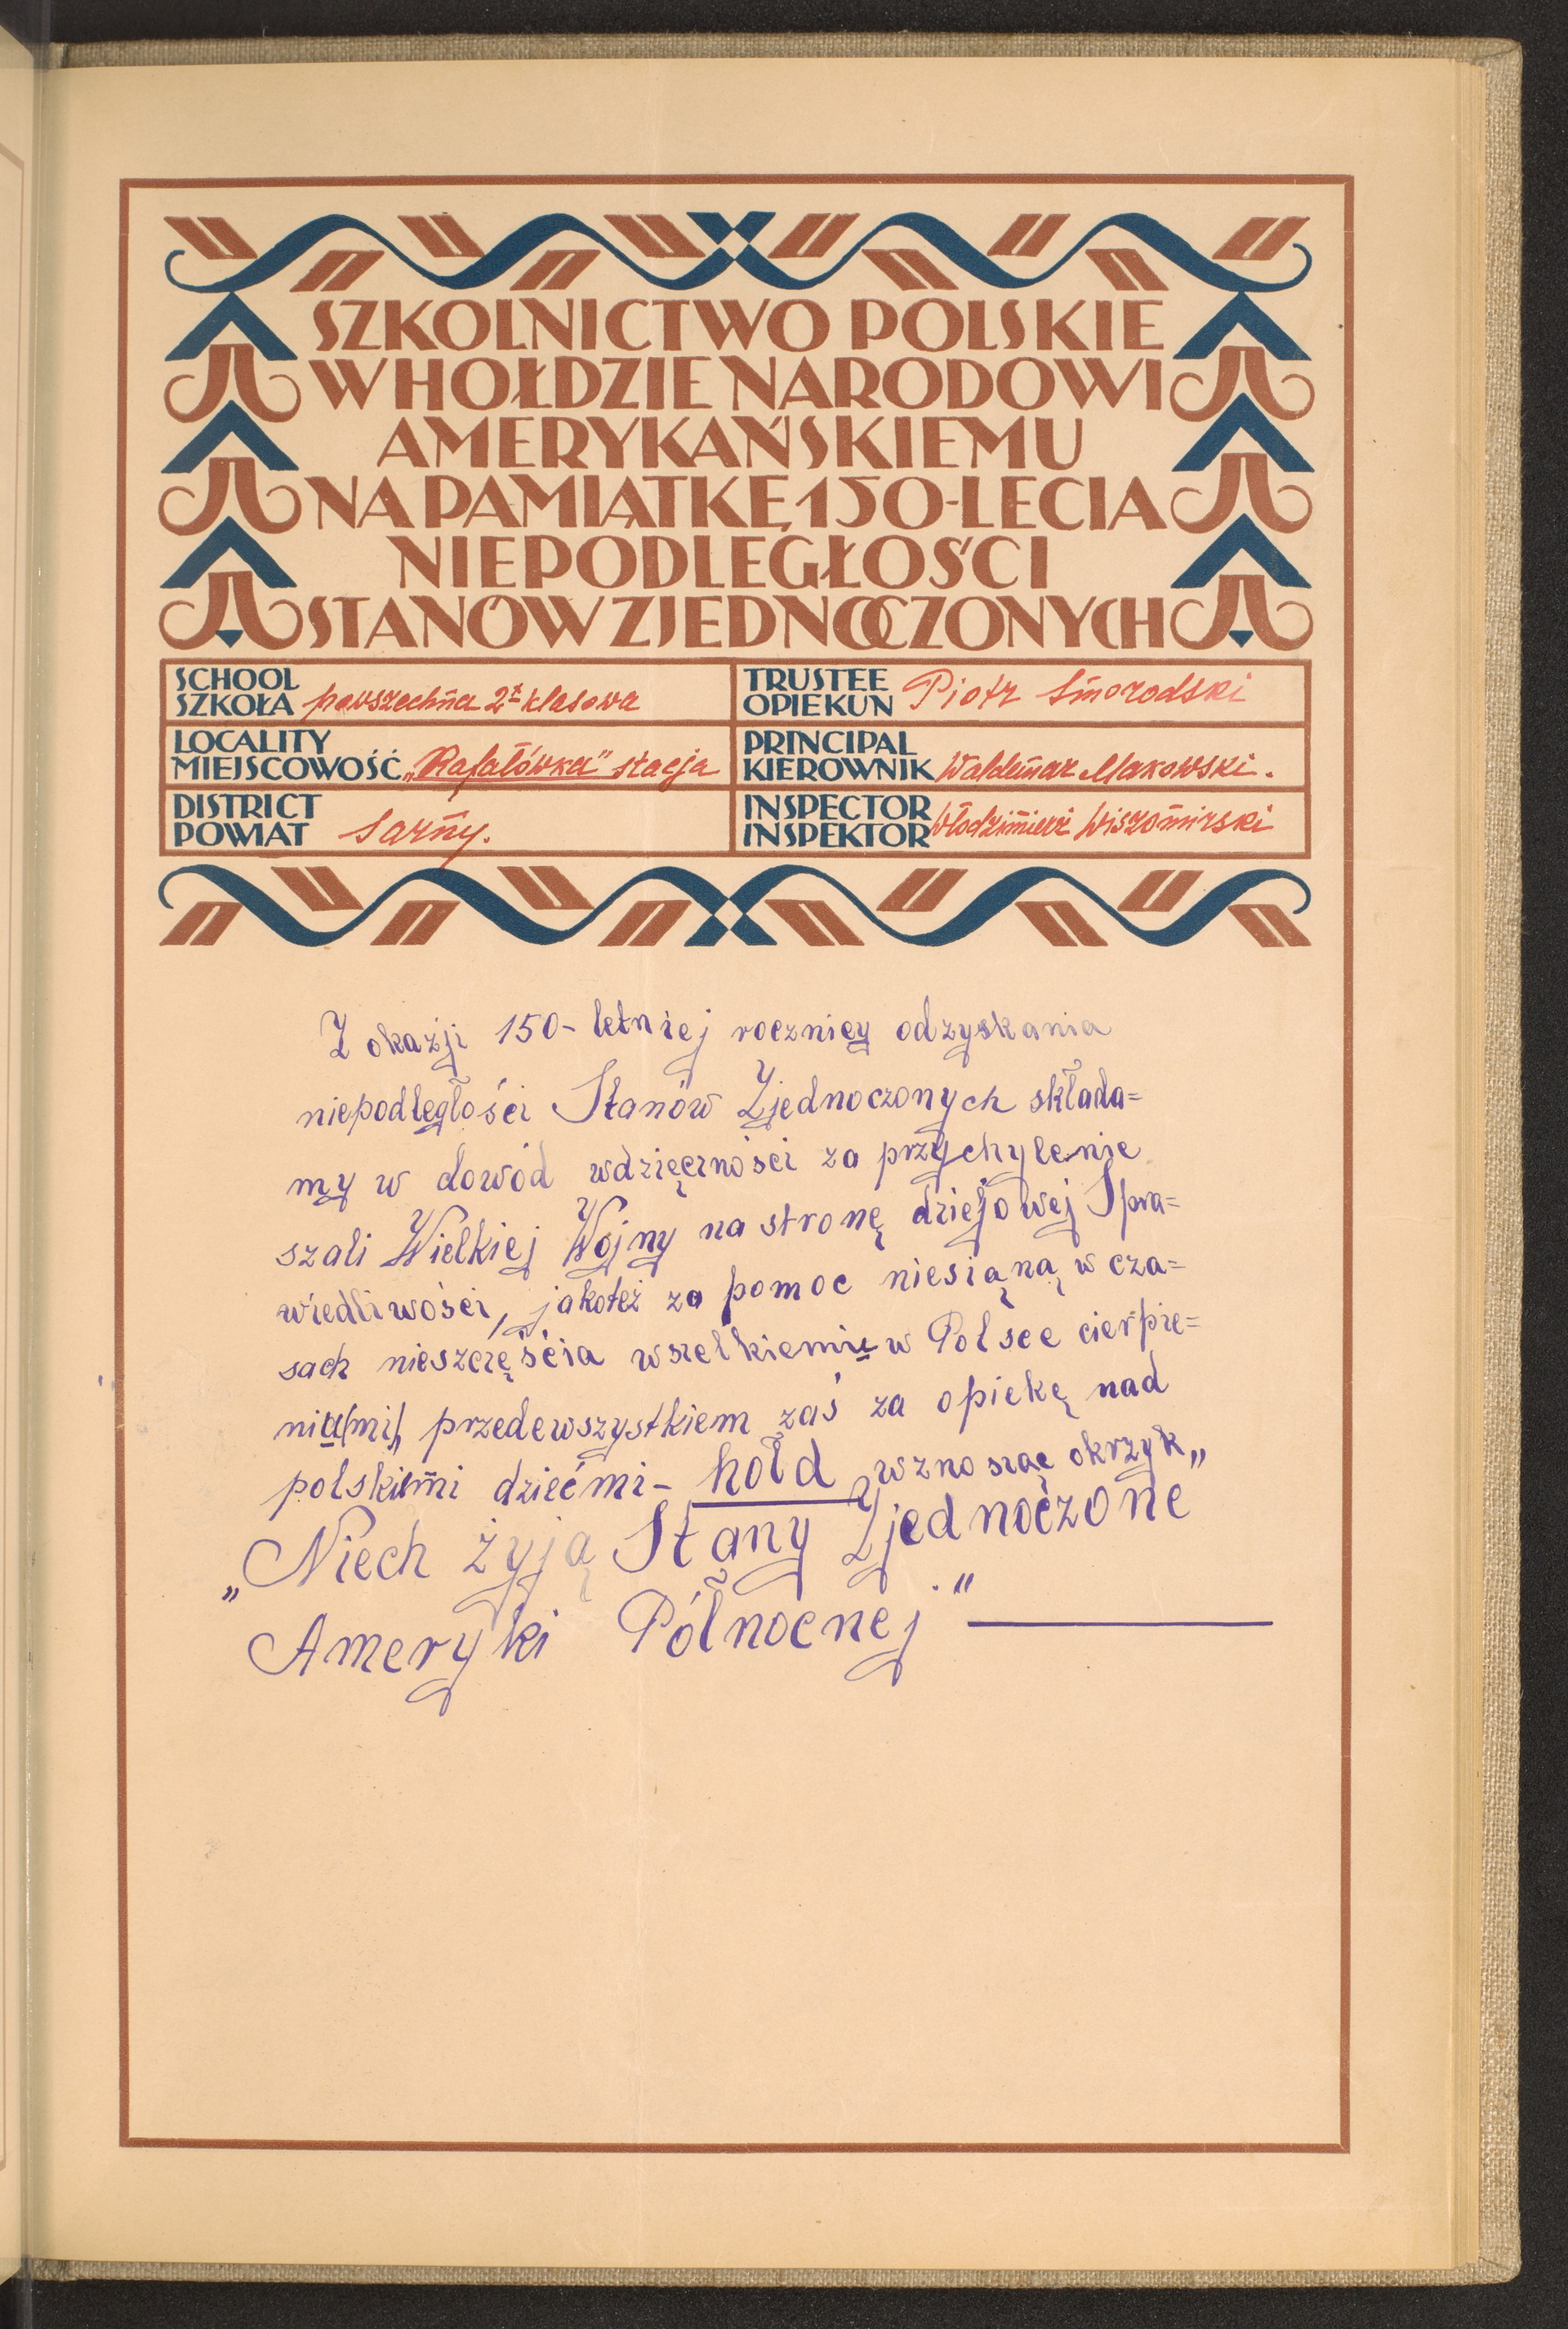 SZKOLNICTWO POLSKIE
W HOŁDZIE NARODOWI
AMERYKAŃSKIEMU
NA PAMIĄTKĘ 150-LECIA
NIEPODLEGŁOŚCI
STANÓW ZJEDNOCZONYCH
SCHOOL
SZKOŁA powszechna 2-klasowa
TRUSTEE
OPIEKUN Piotr Smorodski
LOCALITY
MIEJSCOWOŚĆ „Rafałówka" stacja
PRINCIPAL
KIEROWNIK Waldemar Makowski.
DISTRICT
POWIAT Sarny.
INSPECTOR
INSPEKTOR Włodzimierz Wiszomirski
Z okazji 150-letniej rocznicy odzyskania
niepodległości Stanów Zjednoczonych składa=
my w dowód wdzięczności za przychylenie
szali Wielkiej Wojny na stronę dziejowej Spra=
wiedliwości, jakoteż za pomoc niesiąną w cza=
sach nieszczęścia wszelkiemu w Polsce cierpie=
niu(mi), przedewszystkiem zaś za opiekę nad
polskiemi dziećmi - hołd, wznosząc okrzyk „
„Niech żyją Stany Zjednoczone
Ameryki Północnej."